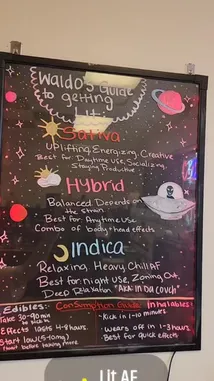 Waldo's Guide
to getting
Lit
Sativa
Uplifting, Energizing, Creative
Best for Daytime Use, Socializing,
Staying Productive
Hybrid
Balanced Depends on
the strain.
Best for Anytime Use
Combo of body + head effects
Indica
Relaxing, Heavy, Chill AF
Best for night use, Zoning Out,
Deep Relaxation "AKA In Da Couch"
Consumption Guide
Edibles:
Take 30-90min
to kick in
Effects lasts 4-8 hours.
Start low (5-10mg)
before taking more
Inhalables:
-Kick in 1-10 minutes
-Wears off in 1-3 hours
-Best for quick effects
Lit AF